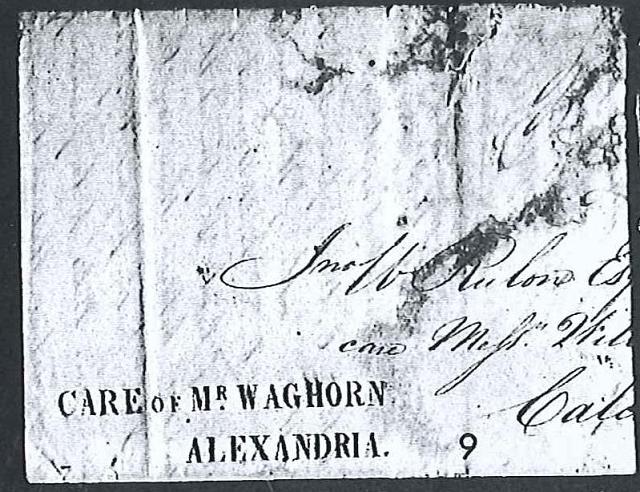 Jno W Rulon Es
care Messrs Will
Calc
CARE OF MR WAGHORN
ALEXANDRIA.
9